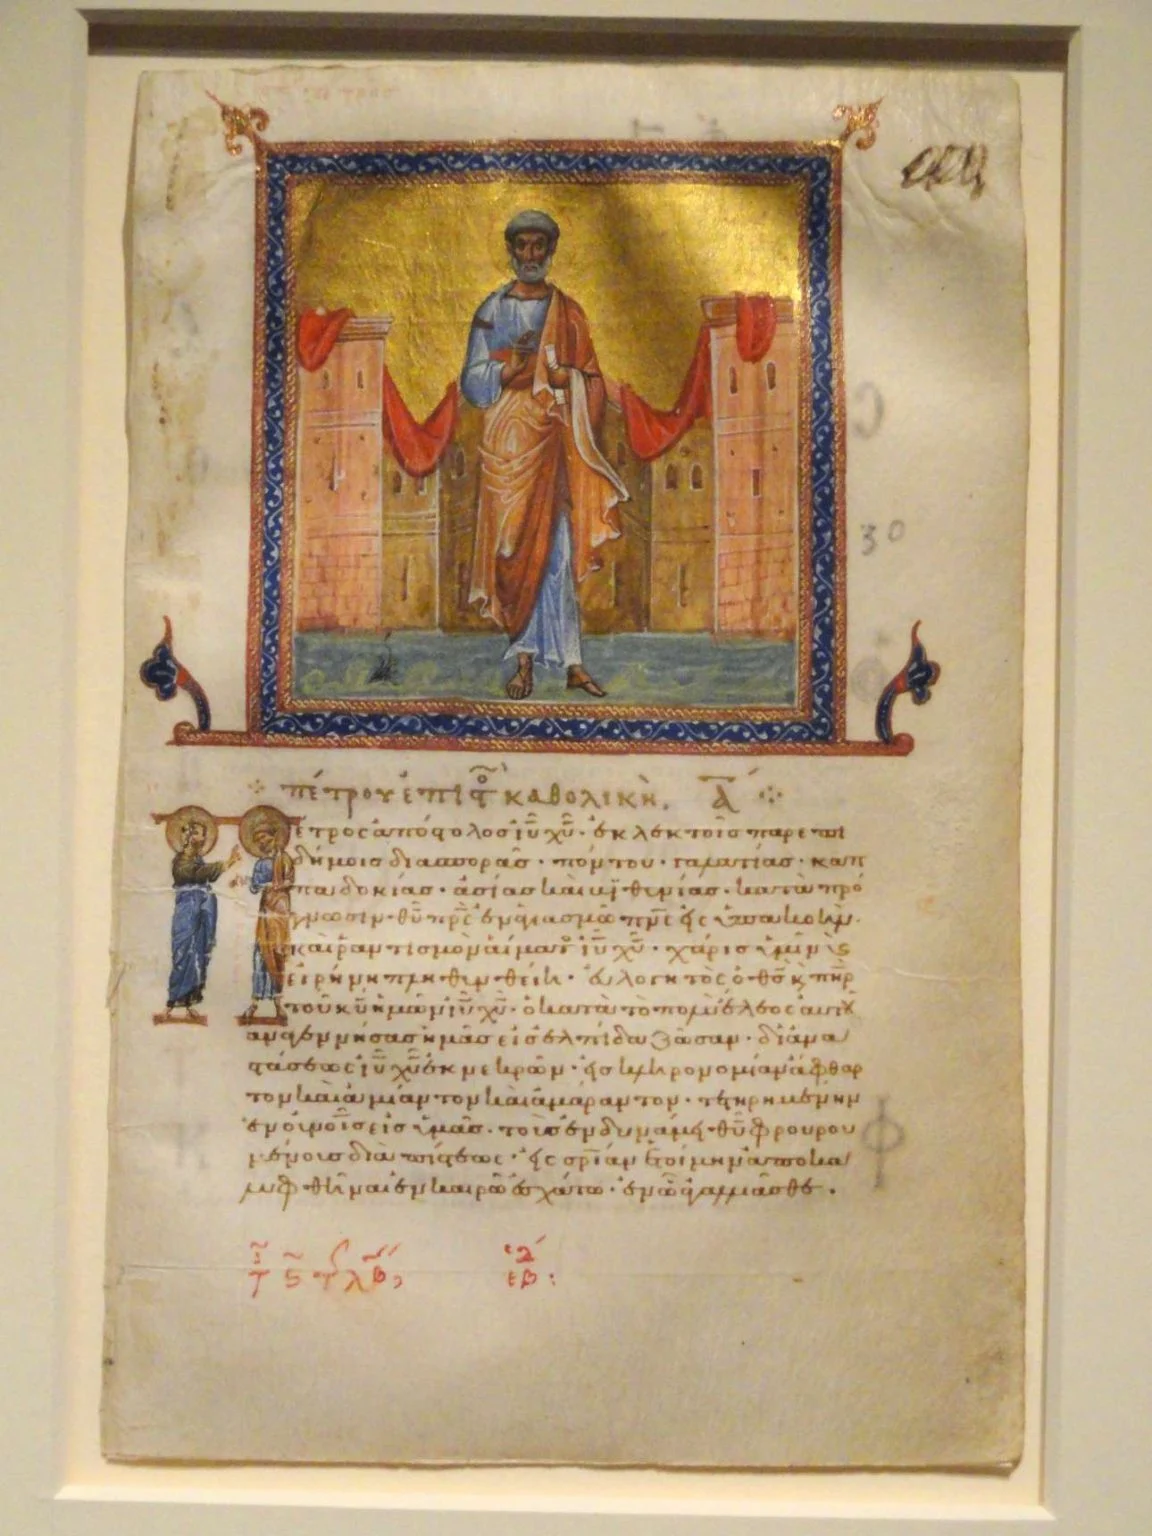 30
πέτρου ἐπιστο καθολικὴ. Α
Πέτρος ἀπόστολος ἰῡ χῡ· ἐκλεκτοῖς παρεπι
δήμοις διασπορᾶς· πόντου· γαλατίας· καπ
παδοκίας· ἀσίας καὶ βιθυνίας· κατὰ πρό
γνωσιν θῡ πρ̅ς ἐν ἁγιασμῶ πν̅ς εἰς ὑπακοὴν·
καὶ ῥαντισμὸν αἵματος ἰῡ χῡ· χάρις ὑμῖν κ̀
εἰρήνη πληθυνθείη· εὐλογητὸς ὁ θς̅ κ̀ πηρ̅
τοῦ κῡ ἡμῶν ἰῡ χῡ· ὁ κατὰ τὸ πολὺ ἔλεος αὐτοῦ
ἀναγεννήσας ἡμᾶς εἰς ἐλπίδα ζῶσαν· δι ἀνα
στάσεως ἰῡ χῡ ἐκ νεκρῶν· εἰς κληρονομίαν ἄφθαρ
τον καὶ ἀμίαντον καὶ ἀμάραντον· τετηρημένην
ἐν οὐνοῖς εἰς ὑμᾶς· τοὺς ἐν δυνάμει θῡ φρουρου
μένους διὰ πίστεως· εἰς σρίαν ἑτοίμην ἀποκα
λυφθῆναι ἐν καιρῶ ἐσχάτω· ἐν ὧ ἀγαλλιᾶσθε.